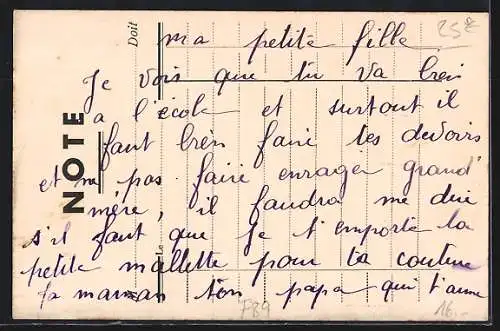 25€
Doit
ma petite fille
Je vois que tu va bien
a l'école et surtout il
faut bien faire tes devoirs
et ne pas faire enrager grand'
mère, il faudra me dire
s'il faut que je t'emporte la
petite mallette pour ta couture
ta maman ton papa qui t'aime
NOTE
Le
F89
16.-